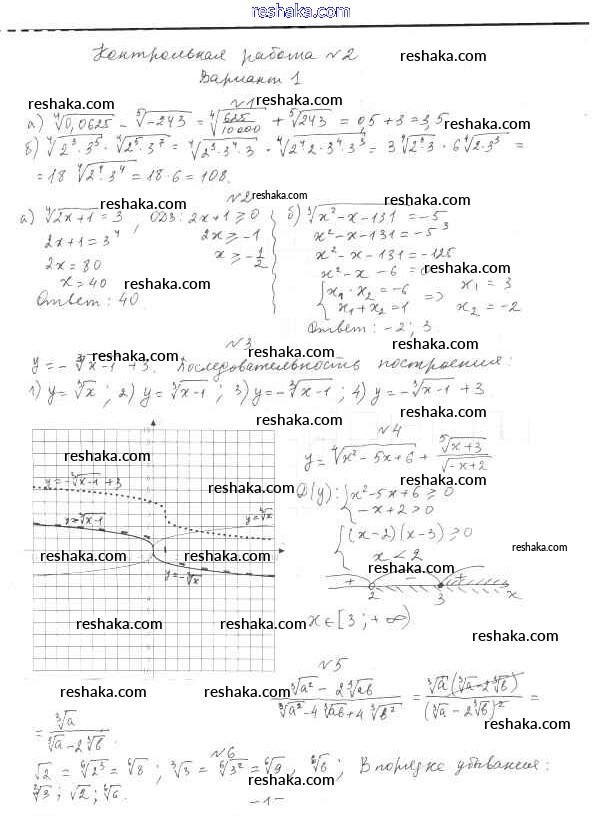 reshaka.com
Контрольная работа №2 reshaka.com
Вариант 1
reshaka.com №1 reshaka.com
а) ⁴√0,0625 - ⁵√-243 = ⁴√(625/10000) + ⁵√243 = 0,5 + 3 = 3,5
reshaka.com
б) ⁴√(2³·3⁵) · ⁴√(2⁵·3⁷) = ⁴√(2³·3⁴·3) · ⁴√(2⁴·2·3⁴·3³) = 3 ⁴√(2³·3) · 6 ⁴√(2·3³) =
= 18 ⁴√(2⁴·3⁴) = 18·6 = 108.
№2 reshaka.com
а) ⁴√(2x+1) = 3, ОДЗ: 2x+1 ≥ 0
2x+1 = 3⁴ 2x ≥ -1
2x = 80 x ≥ -1/2
x = 40 reshaka.com
Ответ: 40.
б) ³√(x²-x-131) = -5
reshaka.com
x²-x-131 = -5³
x²-x-131 = -125
reshaka.com
x²-x-6 = 0
{x₁·x₂ = -6 => x₁ = 3
x₁+x₂ = 1 x₂ = -2
reshaka.com
Ответ: -2; 3.
№3
y = -³√(x-1) + 3. Последовательность построения:
reshaka.com reshaka.com
1) y = ³√x; 2) y = ³√(x-1); 3) y = -³√(x-1); 4) y = -³√(x-1) + 3.
reshaka.com
reshaka.com
y=-³√x-1+3
reshaka.com
y=³√x
y=³√x-1
reshaka.com reshaka.com
y=-³√x
reshaka.com
reshaka.com
№4
y = ⁴√(x²-5x+6) + ⁵√(x+3)/√(-x+2)
reshaka.com
D(y): {x²-5x+6 ≥ 0
-x+2 > 0
{(x-2)(x-3) ≥ 0
x < 2
reshaka.com
reshaka.com
+ - +
2 3 x
x ∈ [3; +∞)
reshaka.com
№5
reshaka.com reshaka.com
(³√a² - 2³√ab)/(³√a² - 4³√ab + 4³√b²) = ³√a(³√a - 2³√b)/(³√a - 2³√b)² =
reshaka.com
= ³√a/(³√a - 2³√b).
reshaka.com
№6
√2 = ⁶√2³ = ⁶√8; ³√3 = ⁶√3² = ⁶√9, ⁶√6; В порядке убывания:
reshaka.com reshaka.com
³√3; √2; ⁶√6.
-1-
reshaka.com